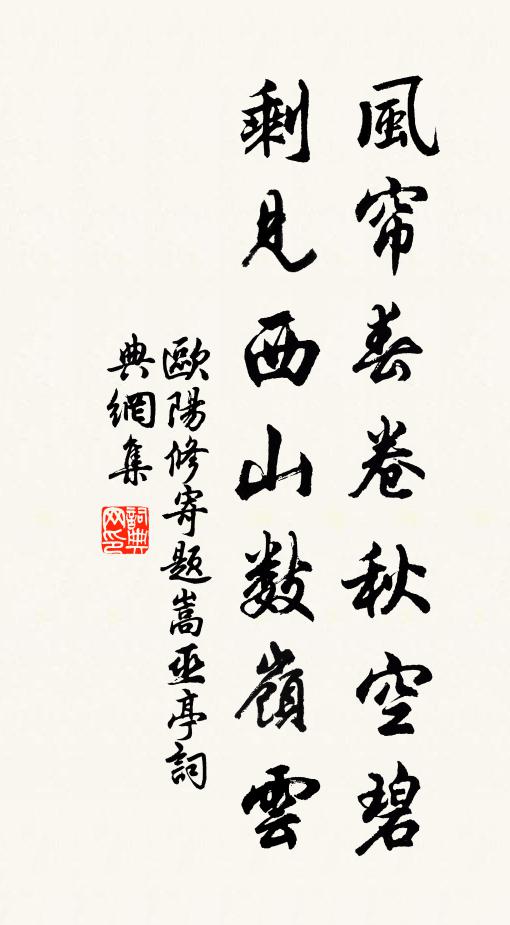 風帘春卷秋空碧
剩見西山數嶺雲
歐陽修寄題嵩巫亭詞
典網集
詞典
网印